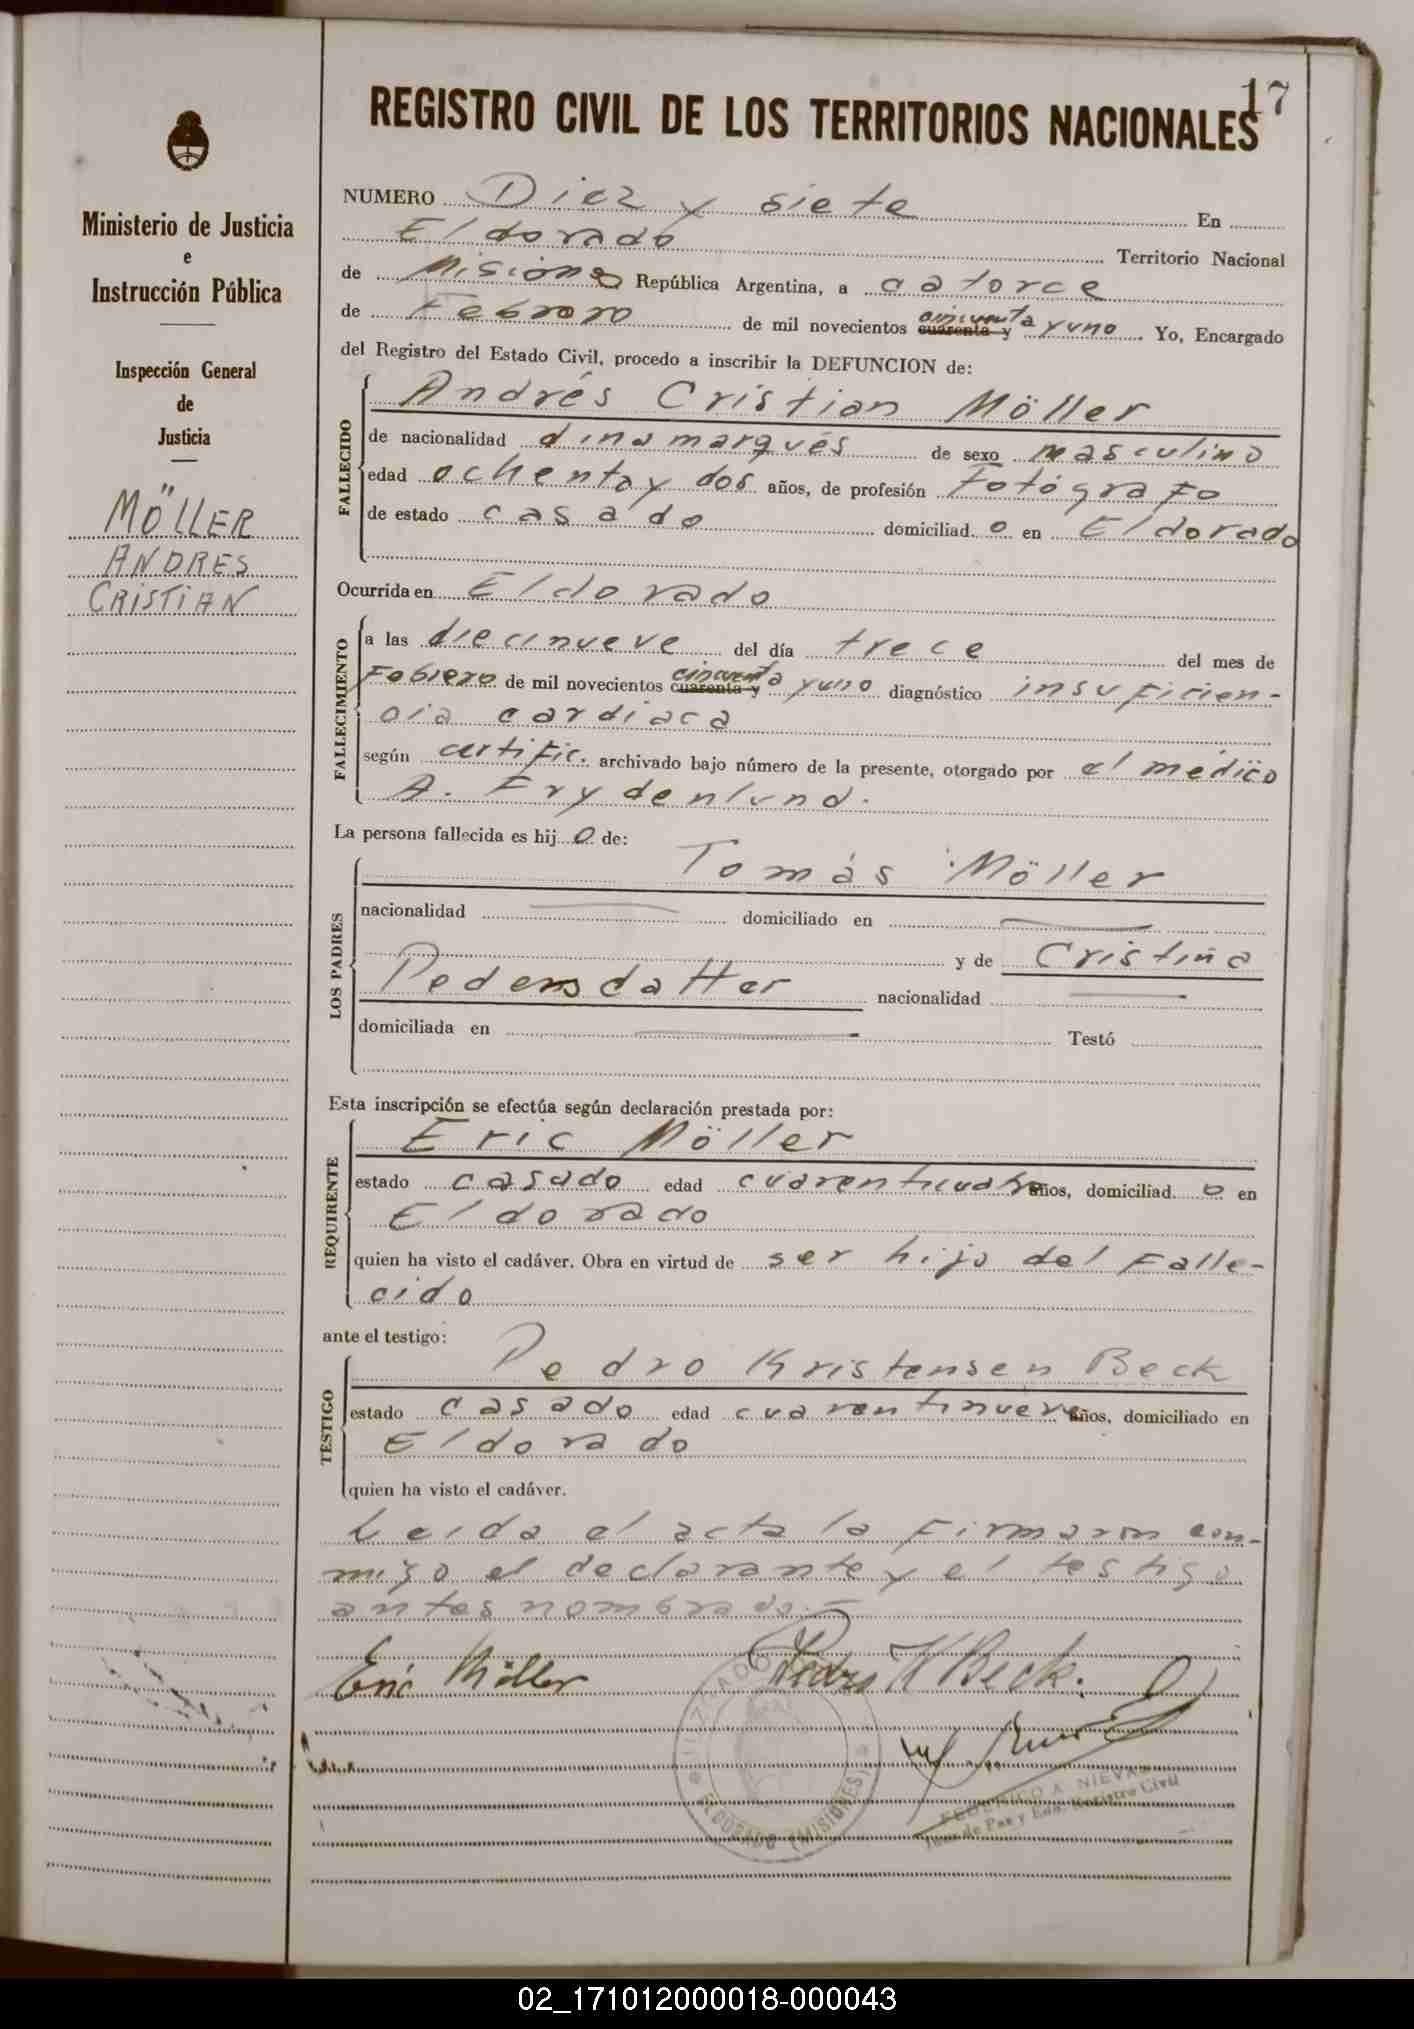 17
REGISTRO CIVIL DE LOS TERRITORIOS NACIONALES
Ministerio de Justicia
e
Instrucción Pública
Inspección General
de
Justicia
MÖLLER
ANDRES
CRISTIAN
NUMERO Diez y siete En
Eldorado Territorio Nacional
de Misiones República Argentina, a catorce
de Febrero de mil novecientos cuarenta y cincuenta y uno. Yo, Encargado
del Registro del Estado Civil, procedo a inscribir la DEFUNCION de:
FALLECIDO
Andrés Cristian Möller
de nacionalidad dinamarqués de sexo masculino
edad ochenta y dos años, de profesión Fotógrafo
de estado casado domiciliad o en Eldorado
Ocurrida en Eldorado
FALLECIMIENTO
a las diecinueve del día trece del mes de
Febrero de mil novecientos cuarenta y cincuenta y uno diagnóstico insuficien-
cia cardiaca
según certific. archivado bajo número de la presente, otorgado por el médico
A. Frydenlund.
La persona fallecida es hij o de:
LOS PADRES
Tomás Möller
nacionalidad domiciliado en
y de Cristina
Pedersdatter nacionalidad
domiciliada en Testó
Esta inscripción se efectúa según declaración prestada por:
REQUIRENTE
Eric Möller
estado casado edad cuarenticuatro años, domiciliad o en
Eldorado
quien ha visto el cadáver. Obra en virtud de ser hijo del Falle-
cido
ante el testigo:
TESTIGO
Pedro Kristensen Beck
estado casado edad cuarentinueve años, domiciliado en
Eldorado
quien ha visto el cadáver.
Leida el acta la firmaron con-
migo el declarante y el testigo
antes nombrado.-
Eric Möller Pedro K Beck.
JUZGADO
ELDORADO (MISIONES)
FEDERICO A. NIEVAS
Juez de Paz y Enc. Registro Civil
02_171012000018-000043